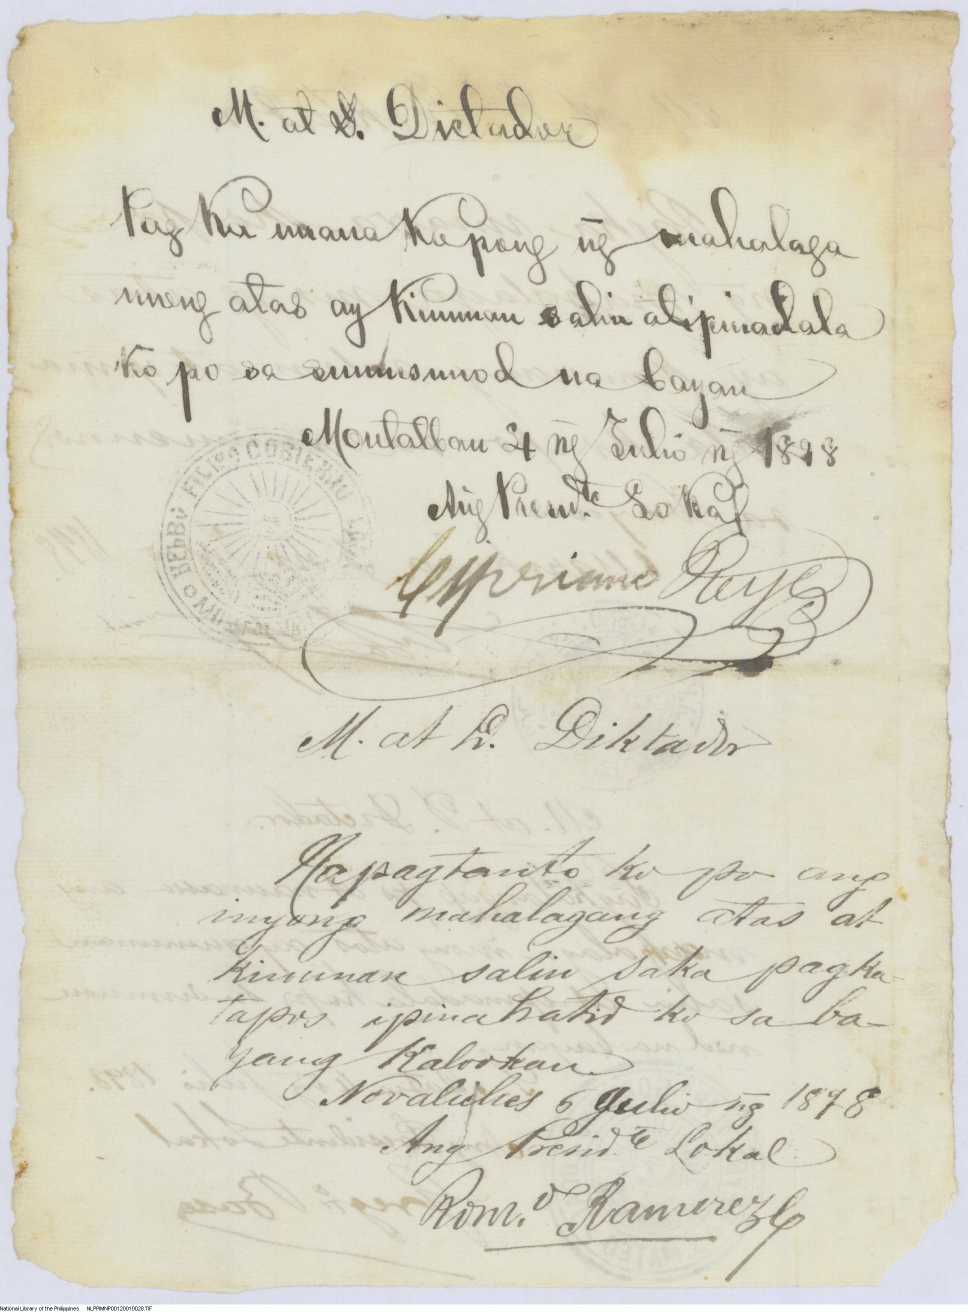 M. at S. Dictador
Pag ka uana ka pong ñg mahalaga
ninong atas ay kinunan salin at ipinadala
ko po sa sumusunod na bayan
Montalban 4 ñg Julio ñg 1898
Ang Presid.te Lokal
Cypriano Reyes
M. at P. Diktador
Napagtanto ko po ang
inyong mahalagang atas at
kinunan salin saka pagka
tapos ipinahatid ko sa ba-
yang Kalookan
Novaliches 6 Julio ñg 1898
Ang Presid.te Lokal
Rom.o Ramirez
National Library of the Philippines NLPPIMNP00120010028.TIF